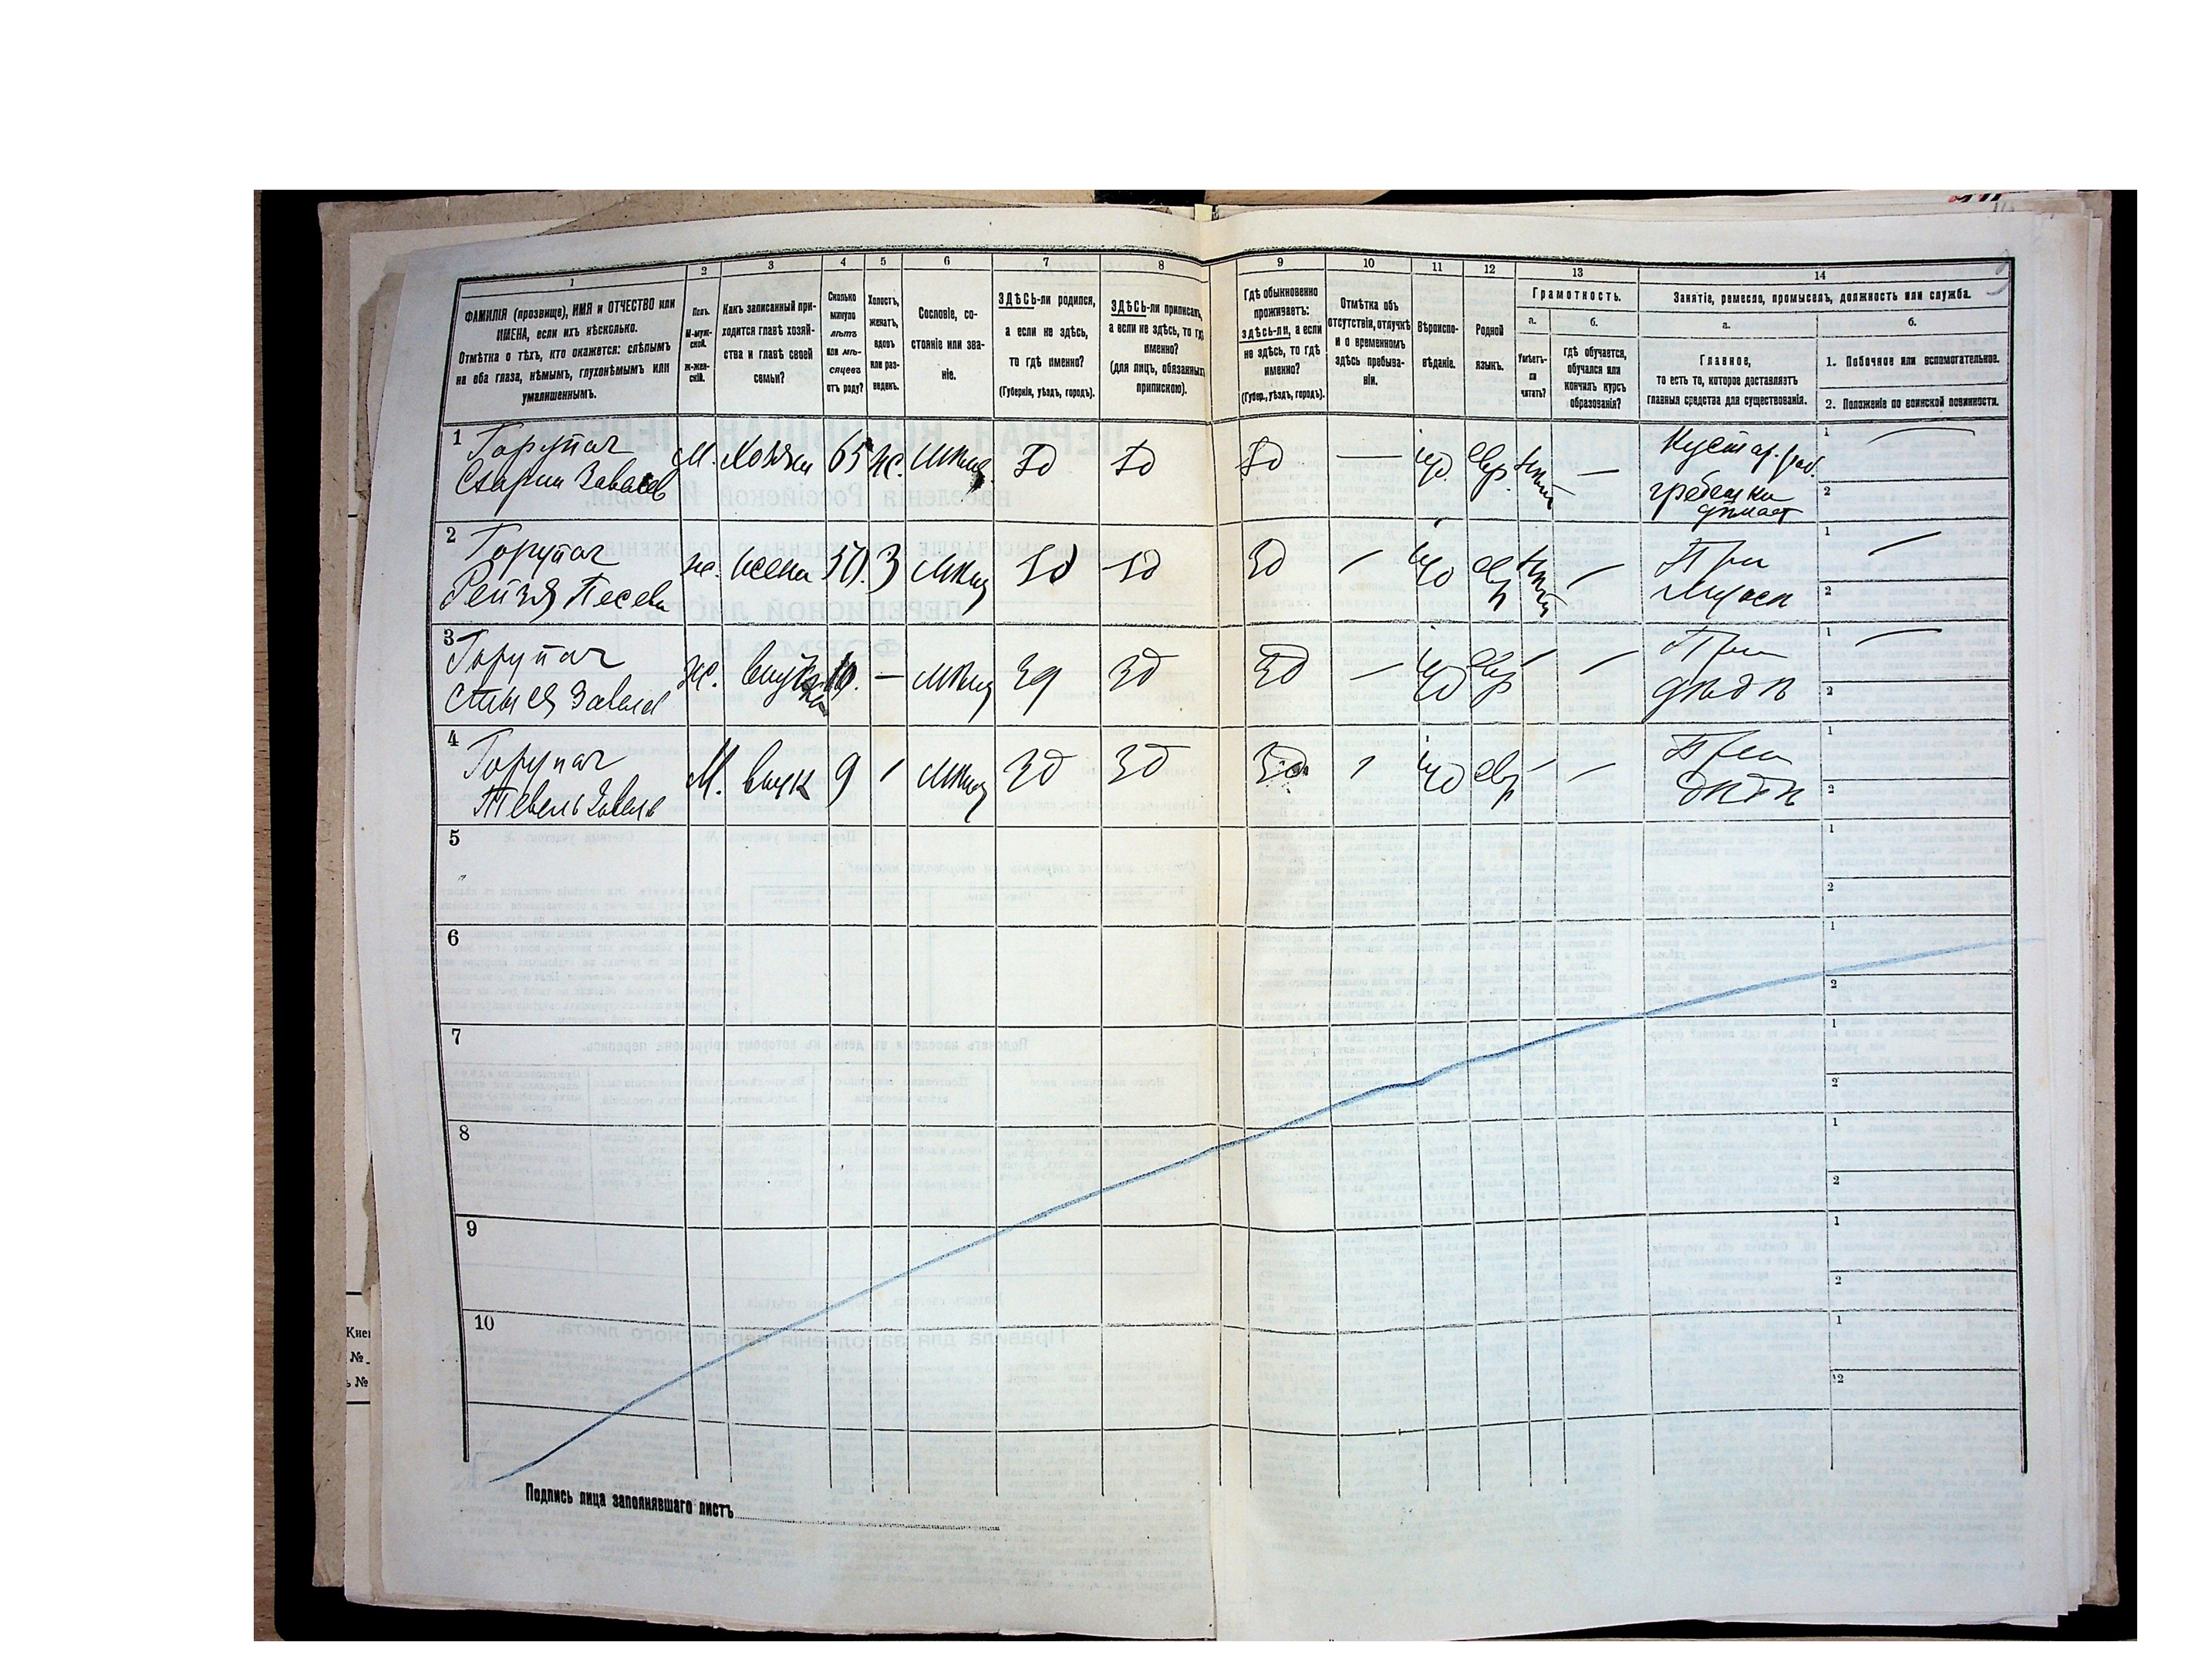 1
2
3
4
5
6
7
8
9
10
11
12
13
14
ФАМИЛІЯ (прозвище), ИМЯ и ОТЧЕСТВО или
ИМЕНА, если ихъ нѣсколько.
Отмѣтка о тѣхъ, кто окажется: слѣпымъ
на оба глаза, нѣмымъ, глухонѣмымъ или
умалишеннымъ.
Полъ.
М-муж-
ской.
Ж-жен-
скій.
Какъ записанный при-
ходится главѣ хозяй-
ства и главѣ своей
семьи?
Сколько
минуло
лѣтъ
или мѣ-
сяцевъ
отъ роду?
Холостъ,
женатъ,
вдовъ
или раз-
веденъ.
Сословіе, со-
стояніе или зва-
ніе.
ЗДѢСЬ-ли родился,
а если не здѣсь,
то гдѣ именно?
(Губернія, уѣздъ, городъ).
ЗДѢСЬ-ли приписанъ,
а если не здѣсь, то гдѣ
именно?
(для лицъ, обязанныхъ
припискою).
Гдѣ обыкновенно
проживаетъ:
здѣсь-ли, а если
не здѣсь, то гдѣ
именно?
(Губер., уѣздъ, городъ).
Отмѣтка объ
отсутствіи, отлучкѣ
и о временномъ
здѣсь пребыва-
ніи.
Вѣроиспо-
вѣданіе.
Родной
языкъ.
Грамотность.
а.
б.
Умѣетъ-
ли
читать?
гдѣ обучается,
обучался или
кончилъ курсъ
образованія?
Занятіе, ремесло, промыселъ, должность или служба.
а.
б.
Главное,
то есть то, которое доставляетъ
главныя средства для существованія.
1. Побочное или вспомогательное.
2. Положеніе по воинской повинности.
1 Горупач М. Хозяин 65 ж. Мѣщ. Зд Зд Зд — іуд. евр — Кустар. раб.
гребешки
дѣлает
1
2
2 Горупач ж. жена 50. З Мѣщ Зд Зд Зд — іуд евр — При
Рейзя мужѣ
1
2
3 Горупач ж. внучка 10. — Мѣщ Зд Зд Зд — іуд евр — — При
дѣдѣ
1
2
4 Горупач М. внук 9 Мѣщ Зд Зд Зд іуд евр — — При
Тевель дѣдѣ
1
2
5
1
2
6
1
2
7
1
2
8
1
2
9
1
2
10
1
2
Подпись лица заполнявшаго листъ
Кие
№
ъ №